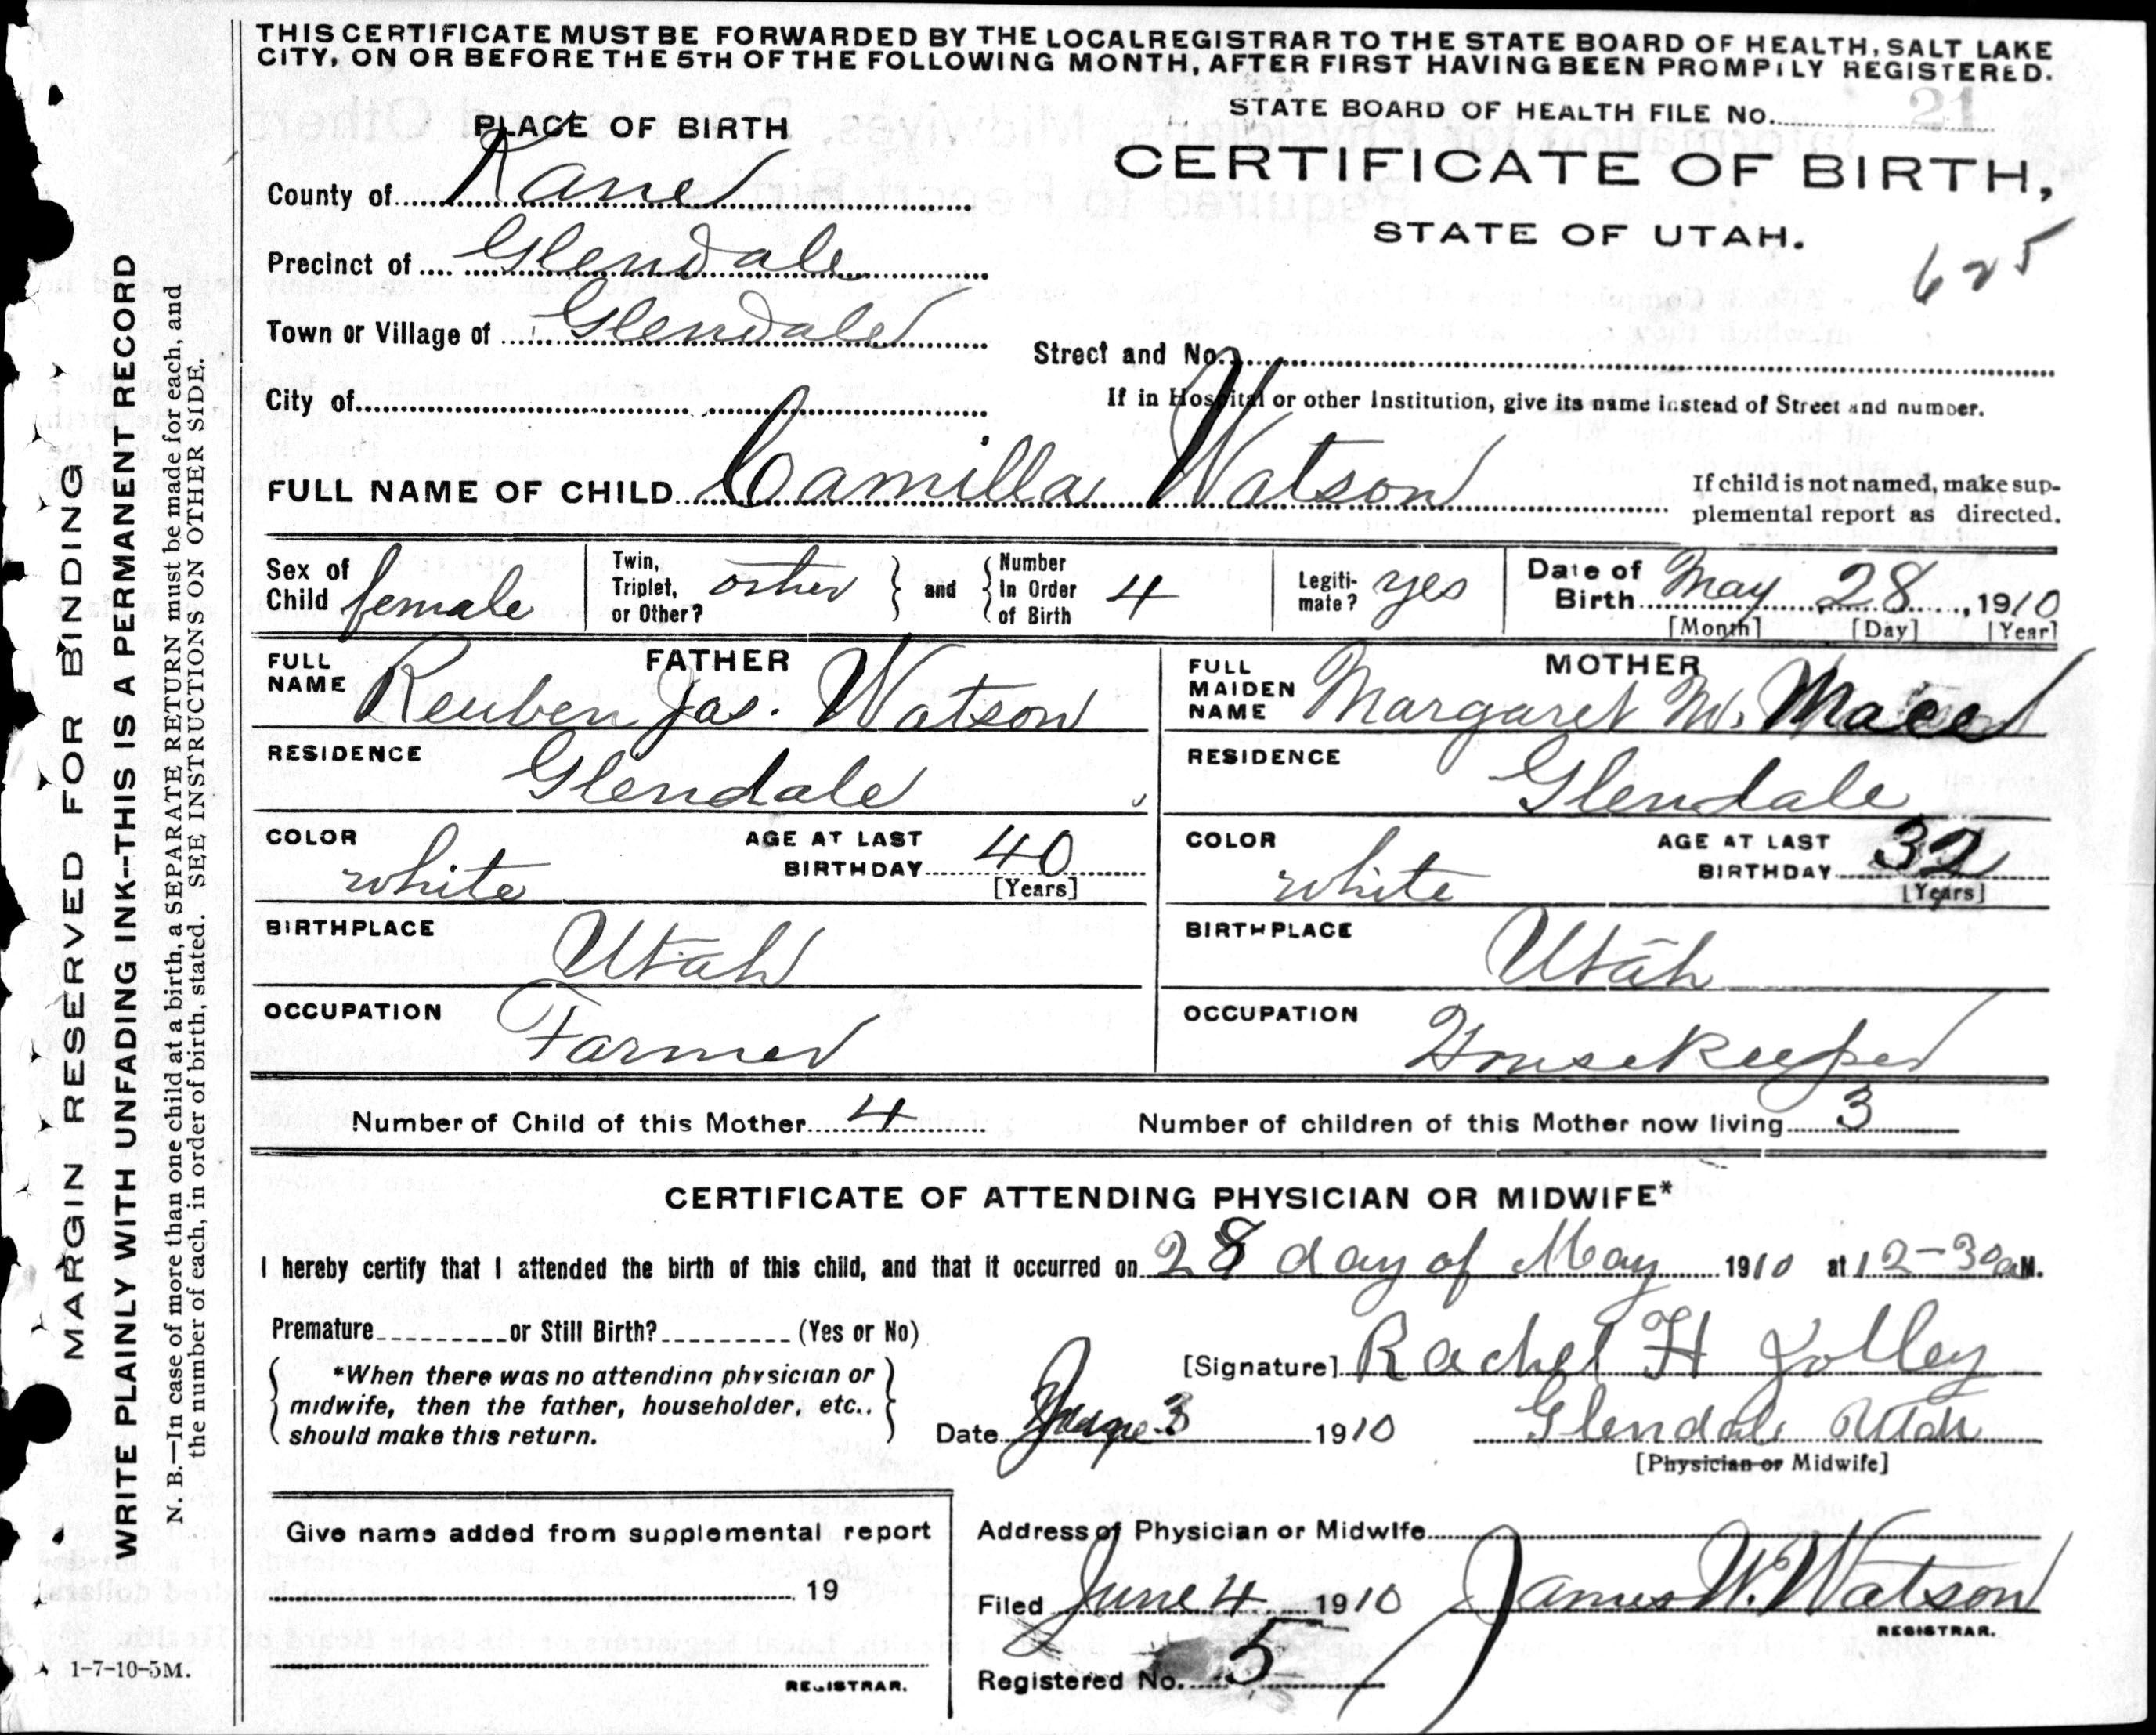 THIS CERTIFICATE MUST BE FORWARDED BY THE LOCAL REGISTRAR TO THE STATE BOARD OF HEALTH, SALT LAKE
CITY, ON OR BEFORE THE 5TH OF THE FOLLOWING MONTH, AFTER FIRST HAVING BEEN PROMPILY REGISTERED.
STATE BOARD OF HEALTH FILE No. 21
PLACE OF BIRTH
CERTIFICATE OF BIRTH,
STATE OF UTAH.
625
County of Kane
Precinct of Glendale
Town or Village of Glendale
Street and No.
City of
If in Hospital or other Institution, give its name instead of Street and number.
FULL NAME OF CHILD Camilla Watson
If child is not named, make sup-
plemental report as directed.
Sex of Child female
Twin, Triplet, or Other? other and Number In Order of Birth 4
Legiti-mate? yes
Date of Birth May 28, 1910
[Month] [Day] [Year]
FATHER
FULL NAME Reuben Jas. Watson
RESIDENCE
Glendale
COLOR white AGE AT LAST BIRTHDAY 40
[Years]
BIRTHPLACE Utah
OCCUPATION Farmer
MOTHER
FULL MAIDEN NAME Margaret M. Mace
RESIDENCE
Glendale
COLOR white AGE AT LAST BIRTHDAY 32
[Years]
BIRTHPLACE Utah
OCCUPATION Housekeeper
Number of Child of this Mother 4 Number of children of this Mother now living 3
CERTIFICATE OF ATTENDING PHYSICIAN OR MIDWIFE*
I hereby certify that I attended the birth of this child, and that it occurred on 28 day of May 1910 at 12-30 a M.
Premature or Still Birth? (Yes or No)
*When there was no attending physician or
midwife, then the father, householder, etc.,
should make this return.
[Signature] Rachel H Jolley
Date June 3 1910 Glendale Utah
[Physician or Midwife]
Give name added from supplemental report
19
REGISTRAR.
Address of Physician or Midwife
Filed June 4 1910 James W. Watson
REGISTRAR.
Registered No. 5
MARGIN RESERVED FOR BINDING
WRITE PLAINLY WITH UNFADING INK--THIS IS A PERMANENT RECORD
N. B.—In case of more than one child at a birth, a SEPARATE RETURN must be made for each, and
the number of each, in order of birth, stated. SEE INSTRUCTIONS ON OTHER SIDE.
1-7-10-5M.